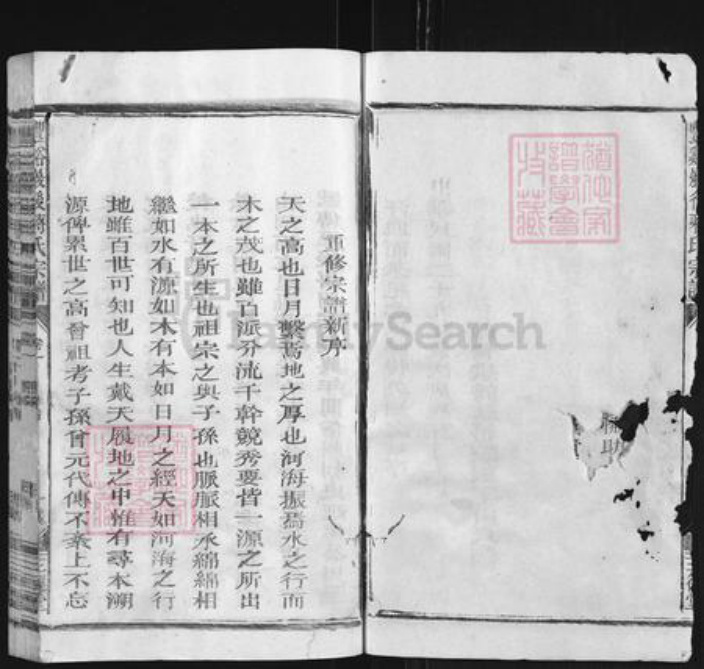 重修宗譜新序
天之高也日月繫焉地之厚也河海振焉水之行而
木之茂也雖百派分流千幹競秀要皆一源之所出
一本之所生也祖宗之與子孫也脈脈相承綿綿相
繼如水有源如木有本如日月之經天如河海之行
地雖百世可知也人生戴天履地之中惟有尋本溯
源俾累世之高曾祖考子孫曾元代傳不紊上不忘
氏宗譜
卷一
FamilySearch